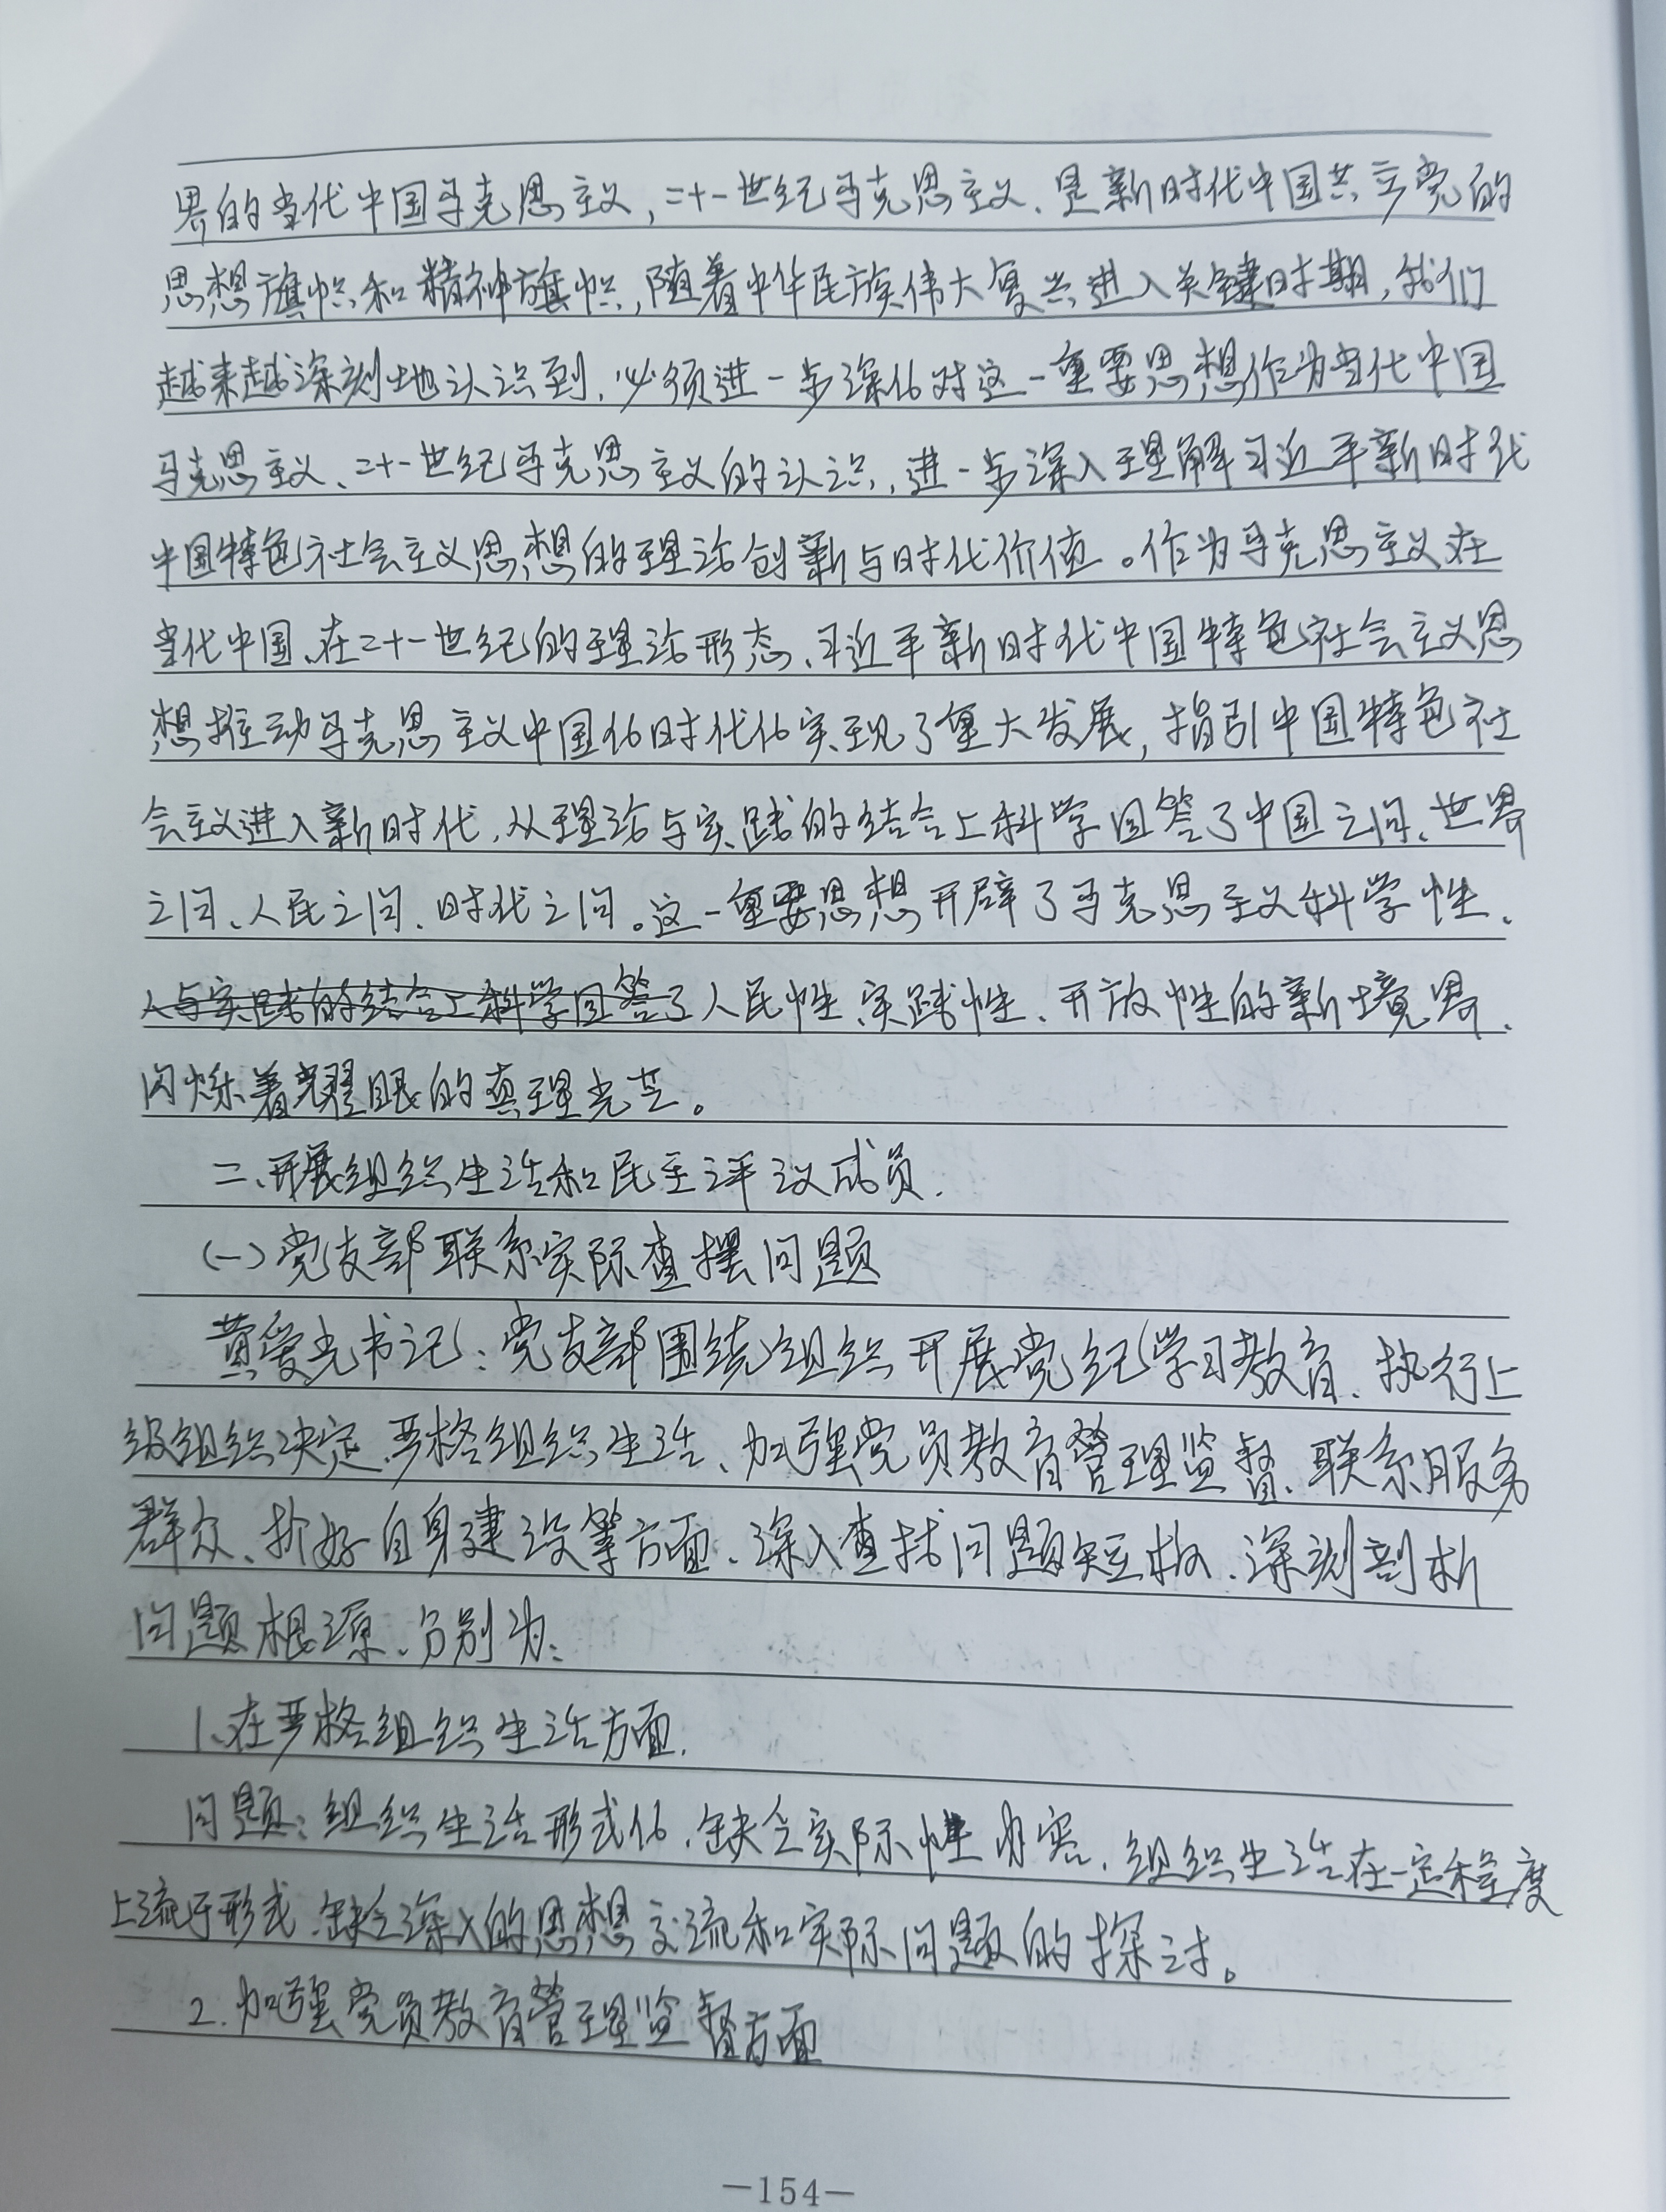 界的当代中国马克思主义,二十一世纪马克思主义、是新时代中国共产党的
思想旗帜和精神旗帜,随着中华民族伟大复兴进入关键时期,我们
越来越深刻地认识到,必须进一步深化对这一重要思想作为当代中国
马克思主义、二十一世纪马克思主义的认识,进一步深入理解习近平新时代
中国特色社会主义思想的理论创新与时代价值。作为马克思主义在
当代中国、在二十一世纪的理论形态、习近平新时代中国特色社会主义思
想推动马克思主义中国化时代化实现了重大发展,指引中国特色社
会主义进入新时代,从理论与实践的结合上科学回答了中国之问、世界
之问、人民之问、时代之问。这一重要思想开辟了马克思主义科学性、
人与实践的结合上科学回答了人民性、实践性、开放性的新境界、
闪烁着耀眼的真理光芒。
二、开展组织生活和民主评议成员.
(一)党支部联系实际查摆问题
黄爱光书记:党支部围绕组织开展党纪学习教育、执行上
级组织决定、严格组织生活、加强党员教育管理监督、联系服务
群众、抓好自身建设等方面、深入查找问题短板、深刻剖析
问题根源、分别为:
1、在严格组织生活方面.
问题:组织生活形式化、缺乏实际性内容、组织生活在一定程度
上流于形式、缺乏深入的思想交流和实际问题的探讨。
2.加强党员教育管理监督方面
—154—